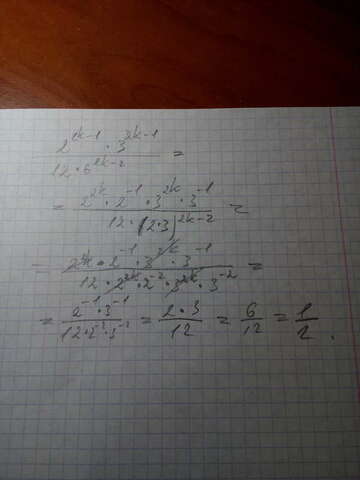 2^{2k-1} · 3^{2k-1} / 12 · 6^{2k-2} =
= 2^{2k} · 2^{-1} · 3^{2k} · 3^{-1} / 12 · (2·3)^{2k-2} =
= 2^{2k} · 2^{-1} · 3^{2k} · 3^{-1} / 12 · 2^{2k} · 2^{-2} · 3^{2k} · 3^{-2} =
= 2^{-1} · 3^{-1} / 12 · 2^{-2} · 3^{-2} = 2 · 3 / 12 = 6 / 12 = 1 / 2 .